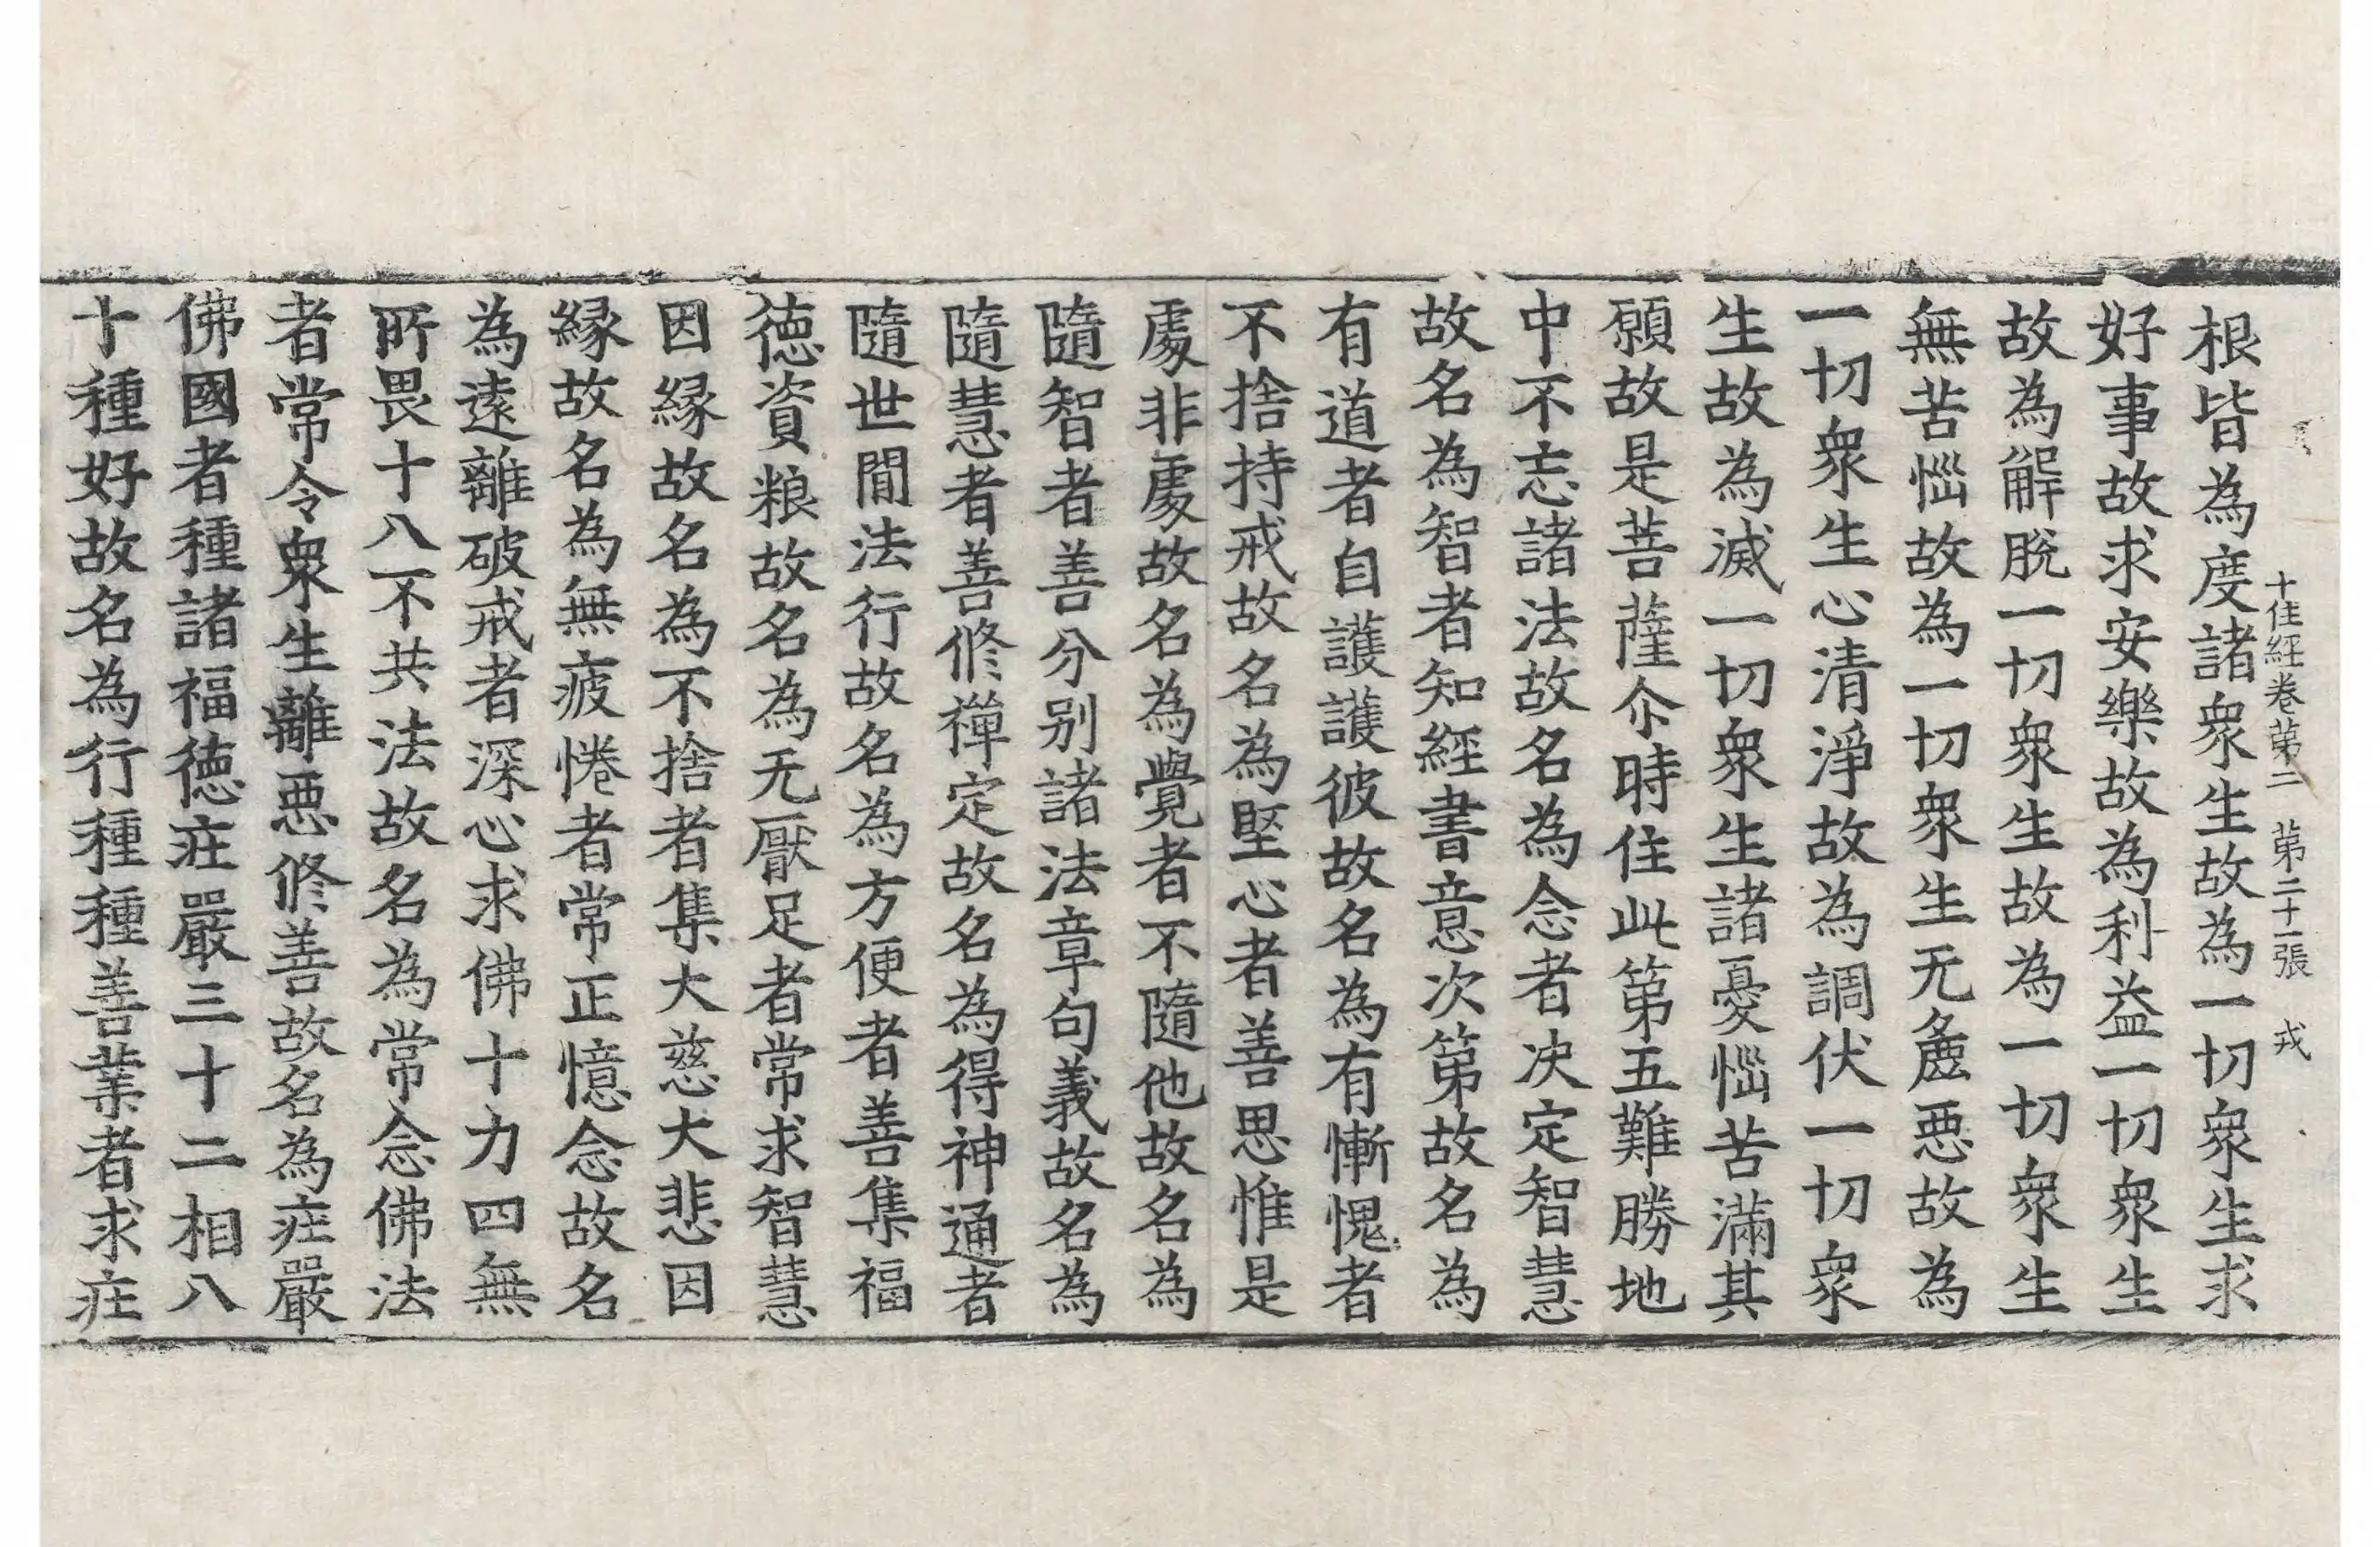 十住經卷第二　第二十一張　戎
根皆為度諸衆生故為一切衆生求
好事故求安樂故為利益一切衆生
故為解脫一切衆生故為一切衆生
無苦惱故為一切衆生无麁惡故為
一切衆生心清淨故為調伏一切衆
生故為滅一切衆生諸憂惱苦滿其
願故是菩薩尒時住此第五難勝地
中不忘諸法故名為念者决定智慧
故名為智者知經書意次第故名為
有道者自護護彼故名為有慚愧者
不捨持戒故名為堅心者善思惟是
處非處故名為覺者不隨他故名為
隨智者善分別諸法章句義故名為
隨慧者善修禪定故名為得神通者
隨世間法行故名為方便者善集福
德資粮故名為无厭足者常求智慧
因緣故名為不捨者集大慈大悲因
緣故名為無疲惓者常正憶念故名
為遠離破戒者深心求佛十力四無
所畏十八不共法故名為常念佛法
者常令衆生離惡修善故名為莊嚴
佛國者種諸福德莊嚴三十二相八
十種好故名為行種種善業者求莊